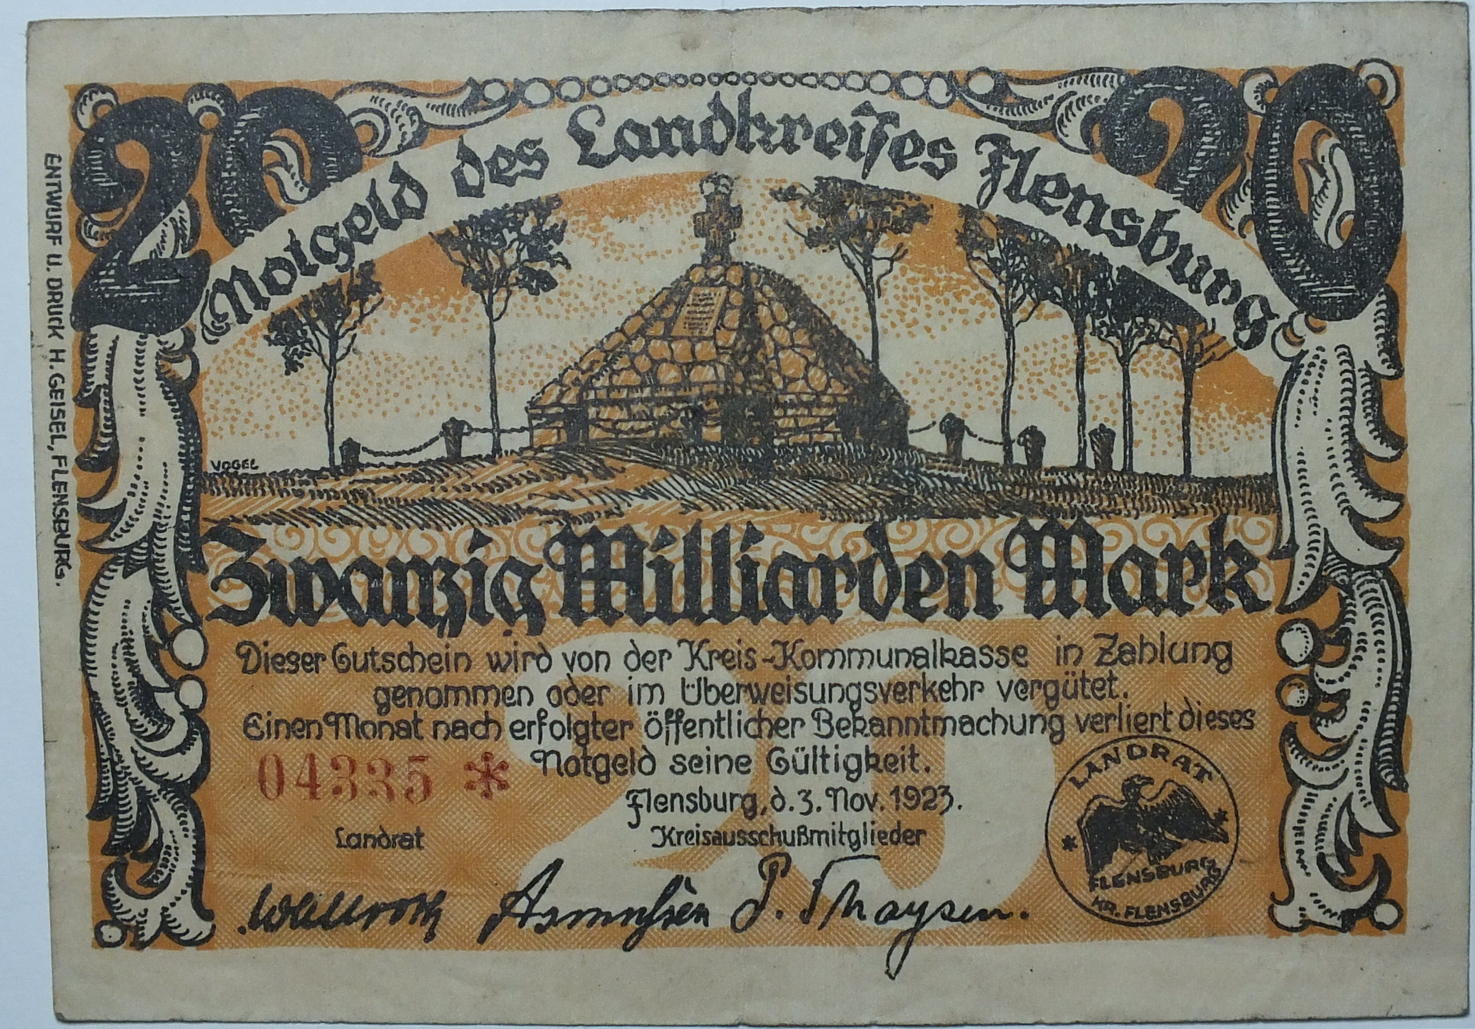 20
20
Notgeld des Landkreises Flensburg
ENTWURF U. DRUCK H. GEISEL, FLENSBURG.
VOGEL
Zwanzig Milliarden Mark
20
Dieser Gutschein wird von der Kreis-Kommunalkasse in Zahlung
genommen oder im Überweisungsverkehr vergütet.
Einen Monat nach erfolgter öffentlicher Bekanntmachung verliert dieses
Notgeld seine Gültigkeit.
04335 *
Flensburg, d. 3. Nov. 1923.
Landrat
Kreisausschußmitglieder
Wallroth Asmussen P. Thaysen.
LANDRAT
FLENSBURG
* KR. FLENSBURG *